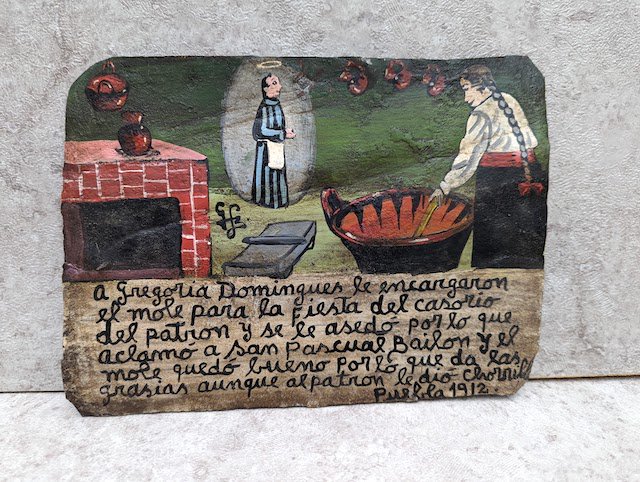 A Gregoria Domingues le encargaron
el mole para la fiesta del casorio
del patron y se le asedó por lo que
aclamó a San Pascual Bailon y el
mole quedó bueno por lo que da las
grasias aunque al patron le dió chorril
Puebla 1912